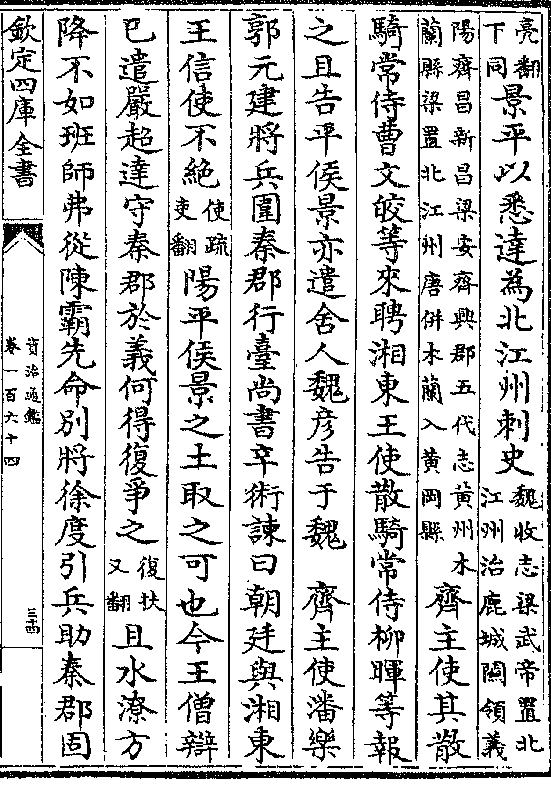 亮翻下同景平以悉達為北江州刺史魏收志梁武帝置北江州治鹿城關領義
陽齊昌新昌梁安齊興郡五代志黄州木蘭縣梁置北江州唐併木蘭入黄岡縣齊主使其散
騎常侍曹文皎等來聘湘東王使散騎常侍柳暉等報
之且告平侯景亦遣舍人魏彦告于魏 齊主使潘樂
郭元建將兵圍秦郡行臺尚書辛術諫曰朝廷與湘東
王信使不絶使疏吏翻陽平侯景之土取之可也今王僧辯
已遣嚴超達守秦郡於義何得復爭之復扶又翻且水潦方
降不如班師弗從陳霸先命別將徐度引兵助秦郡固
欽定四庫全書
資治通鑑
卷一百六十四
三十四